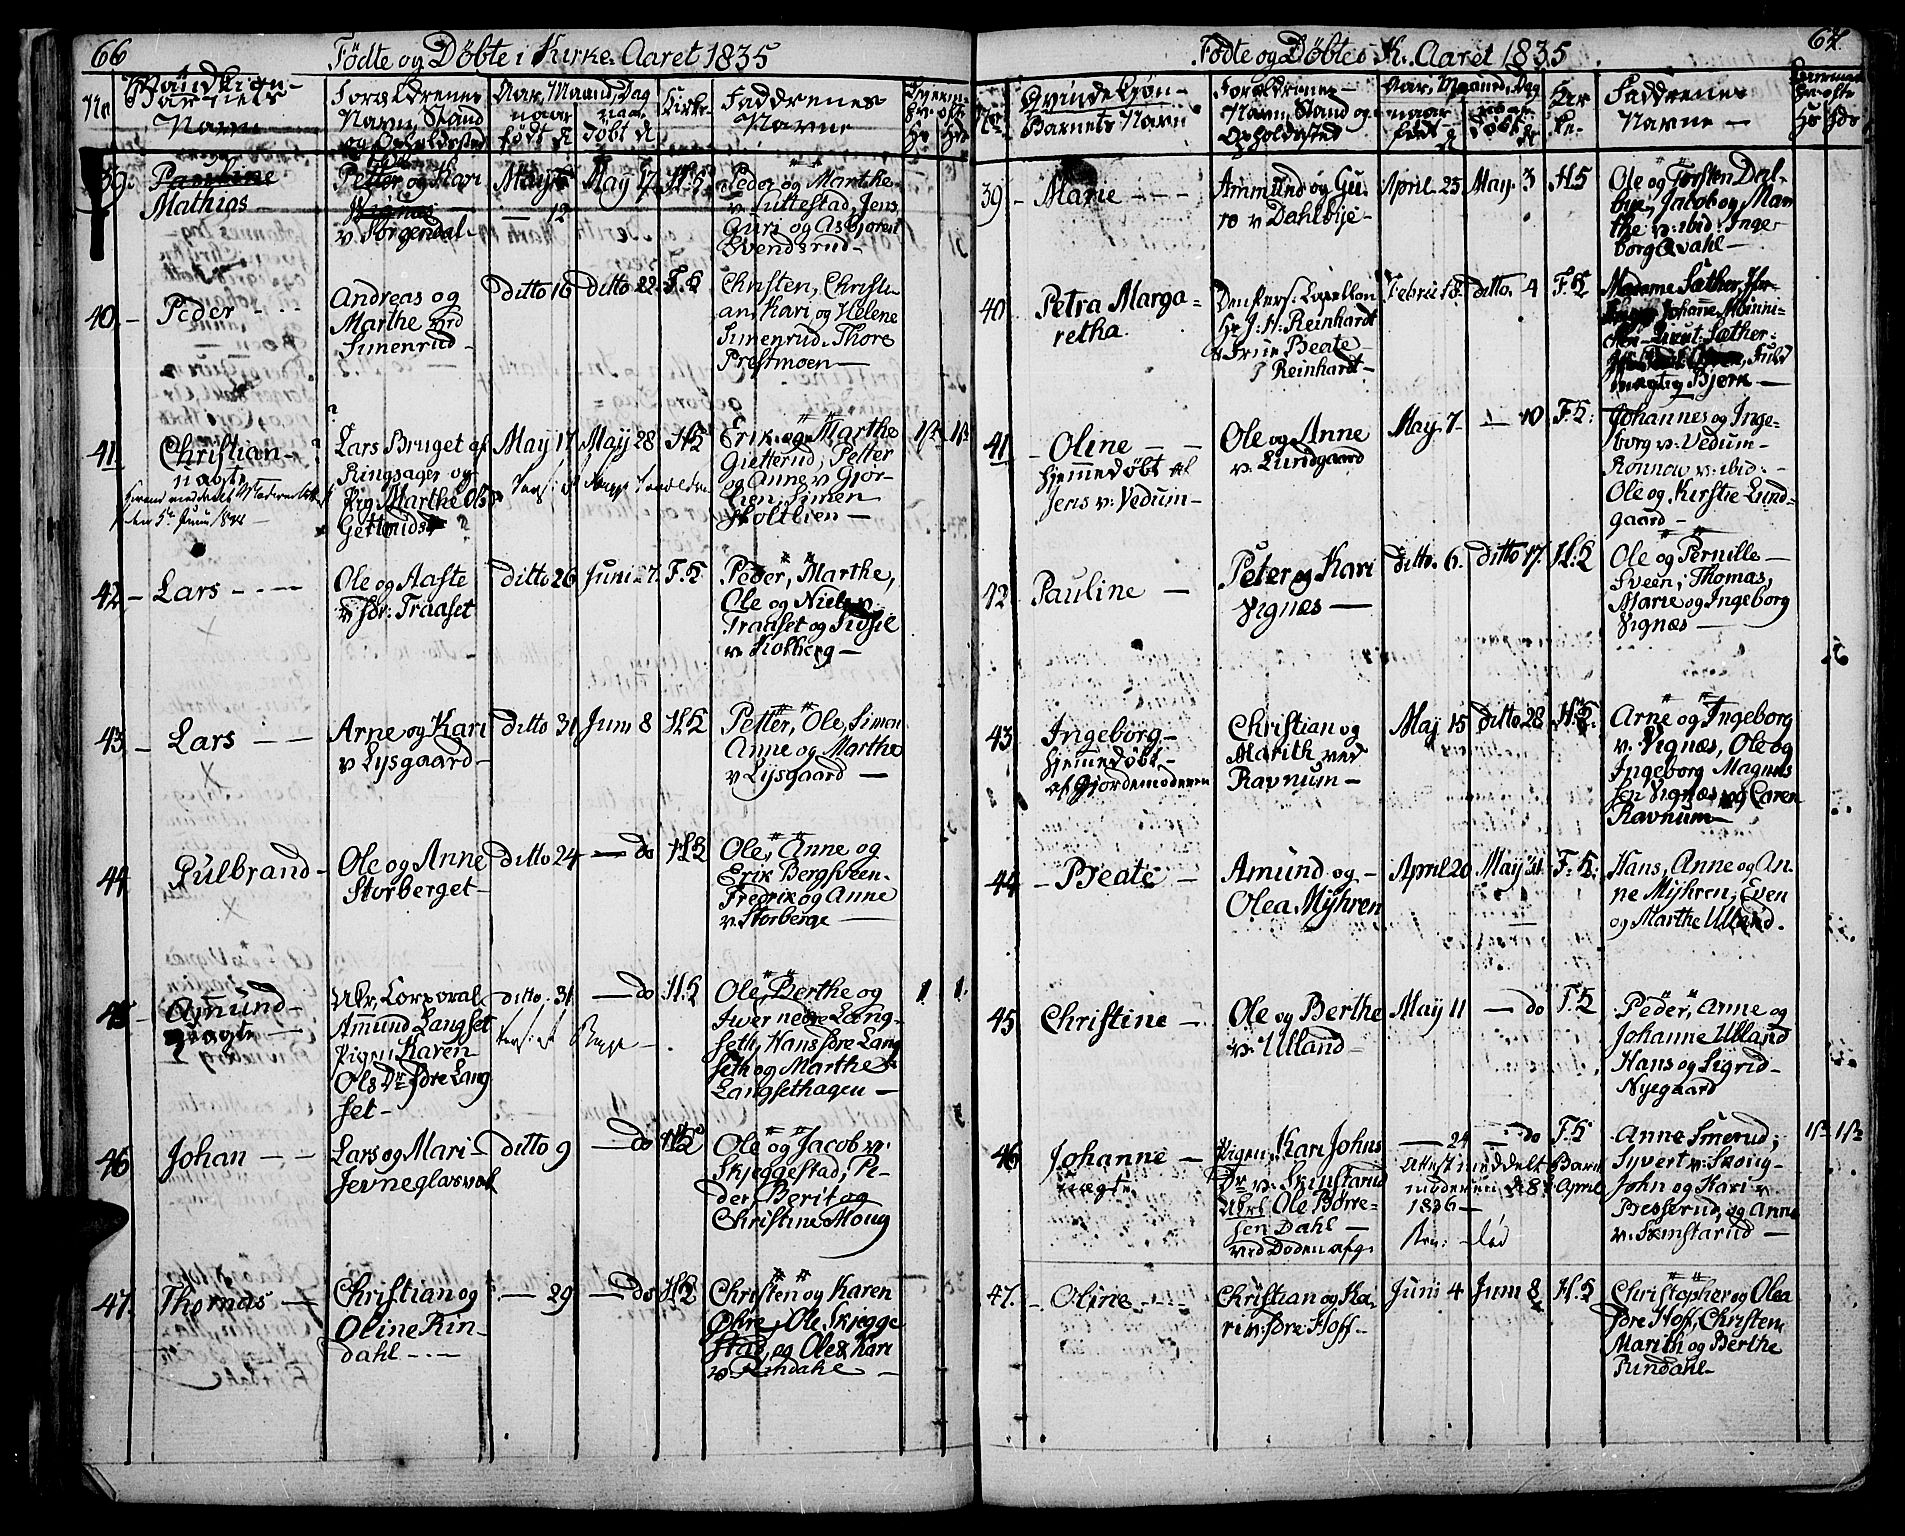 66
Födte og Döbte i Kirke-Aaret 1835
No
Mandkiøn
Barnets
Navn
Forældrenes
Navn, Stand
og Opholdssted
Aar, Maaned, Dag
naar
født
naar
døbt
Kirke
Faddrenes
Navne
39.
Pauline
Mathias
Petter og Kari
Vignæs
v. Sørgendal
May
12
May 17
H.K
Peder og Marthe
v. Tuttestad, Jens
Guri og Asbjøren
Evendsrud
40.
Peder
Andreas og
Marthe ved
Simenrud
ditto 16
ditto 22
F.K
Christen, Christi-
an, Kari og Helene
Simenrud, Thore
Prestmoen
41
Christian
uægte
Lars Bruget af
Ringsager og
Pig. Marthe Ols
May 17
May 28
H.K
Erik og Marthe
Gietterud, Petter
og Anne v. Gjør-
lien, Simen
Holtlien
42
Lars
Ole og Aaste
v. Sør. Traaset
ditto 26
Juni 27.
F.K
Peder, Marthe,
Ole og Niels v.
Traaset og Sidsie
v. Kolberg
43.
Lars
Arne og Kari
v Lysgaard
ditto 31
Juni 8
H.K
Petter, Ole, Simen
Anne og Marthe
v Lysgaard
44
Gulbrand
Ole og Anne
Storberget
ditto 24
do
H.K
Ole, Anne og
Erik Bergsveen
Fredrik og Anne
v. Storberge
45
Amund
uægte
Ukr. Corporal
Amund Langset
Pigen Karen
Ols Dr Sdre Lang
set
ditto 31
do
H.K
Ole, Berthe og
Iwer nedre Lang-
seth, Hans Sdre Lang
seth og Marthe
Langsethagen
1
1
46
Johan
Lars og Mari
Jevneglasvol
ditto 9
do
H.K
Ole og Jacob v.
Skjeggestad, Pe-
der, Berit og
Christine Moug
47.
Thomas
Christian og
Oline Rin-
dahl
29
do
H.K
Christen og Karen
Øhre, Ole Skjegge
stad, og Ole & Kari
v. Rindahl
67.
Födte og Döbte i K. Aaret 1835
No
Qvindekjøn
Barnets Navn
Forældrenes
Navn, Stand og
Opholdssted
Aar, Maaned, Dag
naar
født
naar
døbt
Kir
ke
Faddrenes
Navne
39
Marie
Ammund og Gu-
ro v Dahlbye
April 25
May. 3
H.K
Ole og Torsten Dal-
bye, Jacob og Mar
the v. ibid. Inge-
borg Qvahl
40
Petra Marga-
retha
Den Pers. Capellan
Hr J. H. Reinhardt
& Frue Beate
Reinhardt
Febru 18
ditto. 4
F.K
Madame Sæther,
Lieut: Sæther
Fuld
mægtig Bjerk
41
Oline
hjemmedøbt af
Jens v. Vedum
Ole og Anne
v. Lundgaard
May 7
10
F.K
Johannes og Inge-
borg v. Vedum
Rønnow v. ibid.
Ole og Kirstie Lund-
gaard
42
Pauline
Peter og Kari
Vignæs
ditto. 6.
ditto 17.
H.K
Ole og Pernille
Sveen, Thomas,
Marie og Ingeborg
Vignæs
43
Ingeborg
hjemedøbt
af Gjordemoderen
Christian og
Marith ved
Ravnum
May 15
ditto 28
H.K.
Arne og Ingeborg
v. Vignæs, Ole og
Ingeborg Magnus
sen Vignæs og Caren
Ravnum
44
Beate
Amund og
Olea Myhren
April 20
May 31
F.K.
Hans, Anne og An-
ne Myhren, Even
og Marthe Ulland.
45
Christine
Ole og Berthe
v. Ulland
May 11
do
F.K
Peder, Anne og
Johanne Ulland
Hans og Sigrid
Nyegaard
46
Johanne
uægte
Pigen Kari Johns
Dr v. Skinstarud
Ukrl Ole Børre-
sen Dahl
ved Døden afg.
24
do
F.K
Attest meddelt Barne
moderen d. 8 April
1836
Anne Smerud,
Syvert v. Skoug
John og Kari v.
Besserud, og Anne
v. Semstarud
47.
Oline
Christian og Ka-
ri v. Sdre Hoff
Juni 4
Juni 8
H.K
Christopher og Olea
Sdre Hoff, Christen
Marith og Berthe
Rindahl